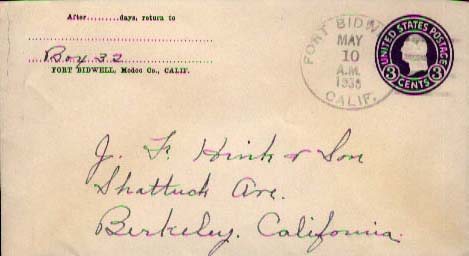 After..........days, return to
Box 32
FORT BIDWELL, Modoc Co., CALIF.
FORT BIDW
MAY
10
A.M.
1938
CALIF.
UNITED STATES POSTAGE
3 CENTS 3
J. F. Hink & Son
Shattuck Ave.
Berkeley, California.